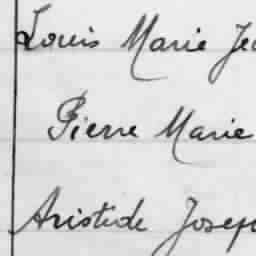 Louis Marie Je
Pierre Marie
Aristide Josep